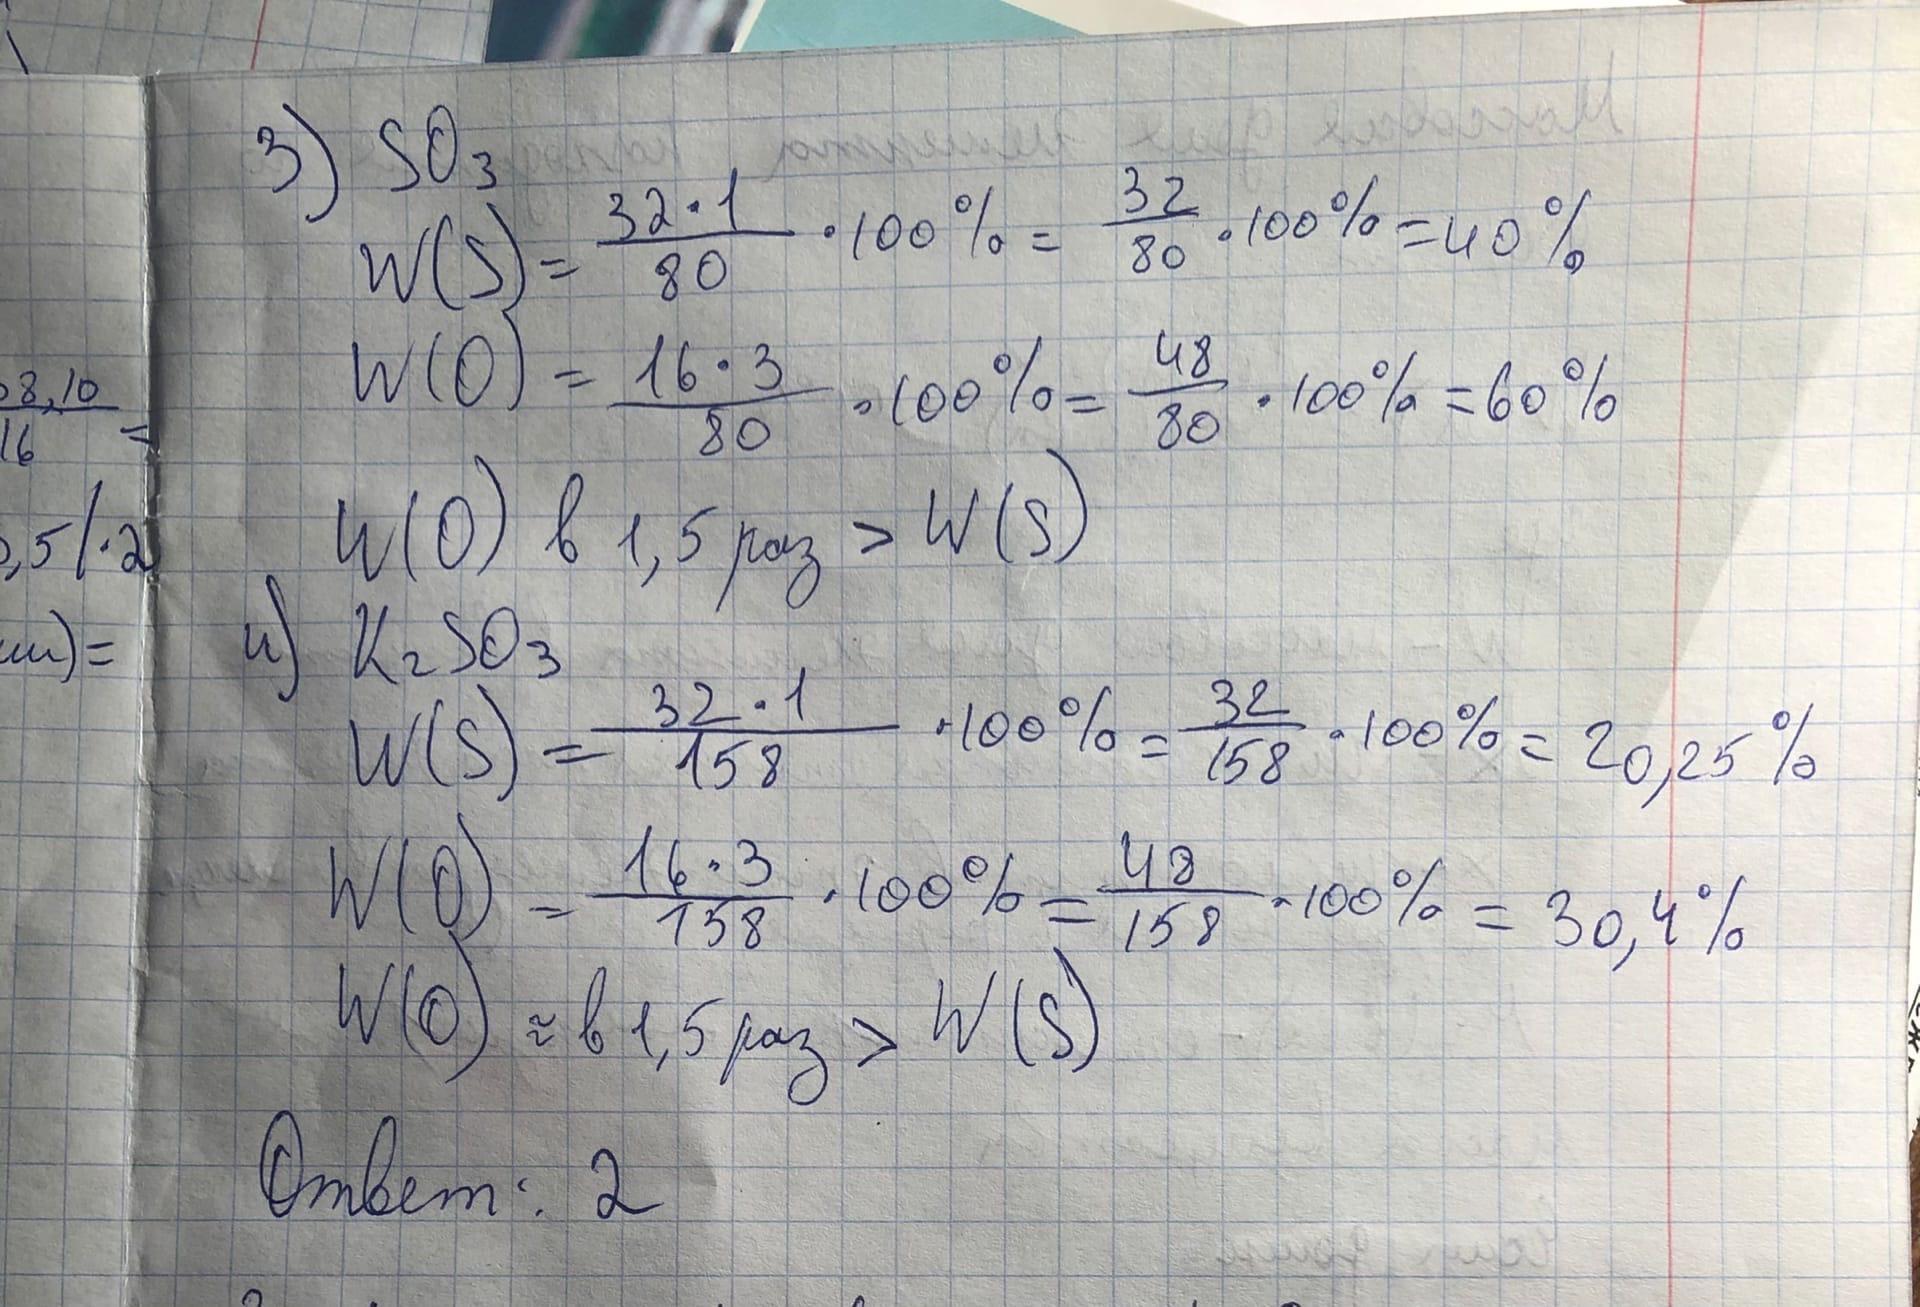 3) SO₃
W(S) = 32·1/80 ·100% = 32/80 ·100% = 40%
W(O) = 16·3/80 ·100% = 48/80 ·100% = 60%
W(O) в 1,5 раз > W(S)
4) K₂SO₃
W(S) = 32·1/158 ·100% = 32/158 ·100% = 20,25%
W(O) = 16·3/158 ·100% = 48/158 ·100% = 30,4%
W(O) ≈ в 1,5 раз > W(S)
Ответ: 2
8,10
16 =
,5/·2
)=